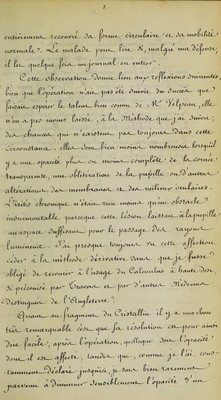 entièrement recouvré sa forme circulaire et sa mobilité
normale. Le malade peut lire &, malgré ma défense,
il lit quelque fois un journal en entier.
Cette observation donne lieu aux réflexions suivantes,
bien que l'opération n'ait pas été suivie du succès que
faisait espérer le talent bien connu de Mr Velpeau, elle
n'en a pas moins laissé, à la méthode que j'ai suivie,
des chances qui n'existent pas toujours dans cette
circonstance. elles sont bien moins nombreuses lorsqu'il
y a une opacité plus ou moins complète de la cornée
transparente, une oblitération de la pupille ou d'autres
altérations des membranes et des milieux oculaires.
L'iritis chronique n'était rien moins qu'un obstacle
insurmontable parceque cette lésion laissait à la pupille
un espace suffisant pour le passage des rayons
lumineux. J'ai presque toujours vu cette affection
céder à la méthode dérivative sans que je fusse
obligé de recourir à l'usage du Calomelas à haute dose,
si préconisé par Travers et par d'autres Médecins
Distingués de l'Angleterre.
Quant au fragment du Cristallin il y a une chose
très remarquable c'est que sa résolution est pour ainsi
dire facile, après l'opération, quelque soit l'opacité
dont il est affecté, tandis que, comme je l'ai cons-
tamment déclaré jusqu'ici, je suis bien rarement
parvenu à diminuer sensiblement l'opacité d'un